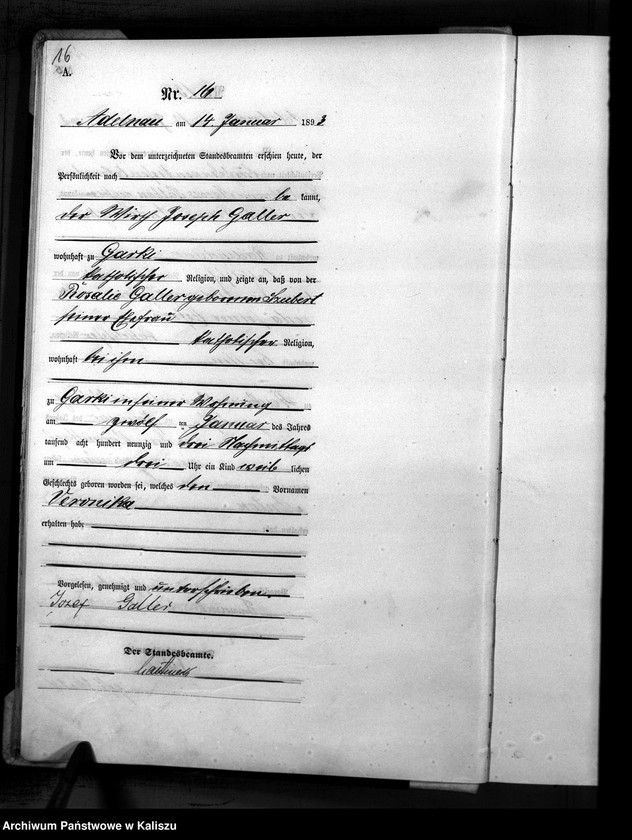 16
A.
Nr. 16
Adelnau am 14. Januar 1893
Vor dem unterzeichneten Standesbeamten erschien heute, der
Persönlichkeit nach
be kannt,
der Wirth Joseph Galler
wohnhaft zu Garki
katholischer Religion, und zeigte an, daß von der
Rosalie Galler geborenen Szubert
seiner Ehefrau
katholischer Religion,
wohnhaft bei ihm
zu Garki in seiner Wohnung
am zwölf ten Januar des Jahres
tausend acht hundert neunzig und drei Nachmittags
um drei Uhr ein Kind weib lichen
Geschlechts geboren worden sei, welches den Vornamen
Veronika
erhalten habe
Vorgelesen, genehmigt und unterschrieben.
Jozef Galler
Der Standesbeamte.
Archiwum Państwowe w Kaliszu